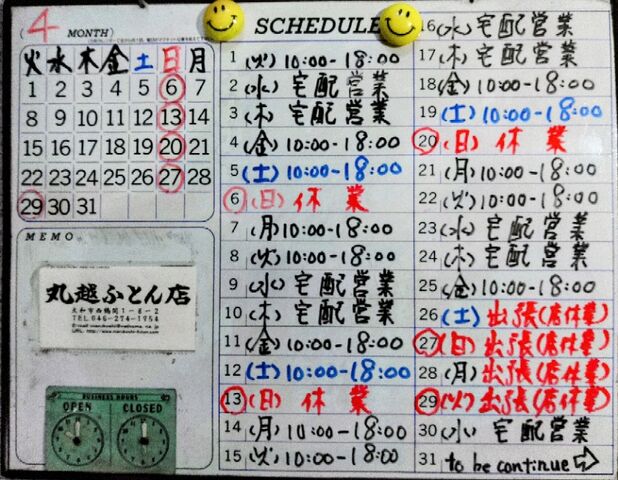 4 MONTH
火 水 木 金 土 日 月
1 2 3 4 5 6 7
8 9 10 11 12 13 14
15 16 17 18 19 20 21
22 23 24 25 26 27 28
29 30 31
MEMO
丸越ふとん店
大和市西鶴間1-8-2
TEL 046-274-1954
BUSINESS HOURS
OPEN CLOSED
SCHEDULE
1 (火) 10:00-18:00
2 (水) 宅配営業
3 (木) 宅配営業
4 (金) 10:00-18:00
5 (土) 10:00-18:00
6 (日) 休業
7 (月) 10:00-18:00
8 (火) 10:00-18:00
9 (水) 宅配営業
10 (木) 宅配営業
11 (金) 10:00-18:00
12 (土) 10:00-18:00
13 (日) 休業
14 (月) 10:00-18:00
15 (火) 10:00-18:00
16 (水) 宅配営業
17 (木) 宅配営業
18 (金) 10:00-18:00
19 (土) 10:00-18:00
20 (日) 休業
21 (月) 10:00-18:00
22 (火) 10:00-18:00
23 (水) 宅配営業
24 (木) 宅配営業
25 (金) 10:00-18:00
26 (土) 出張(店休業)
27 (日) 出張(店休業)
28 (月) 出張(店休業)
29 (火) 出張(店休業)
30 (水) 宅配営業
31 to be continue